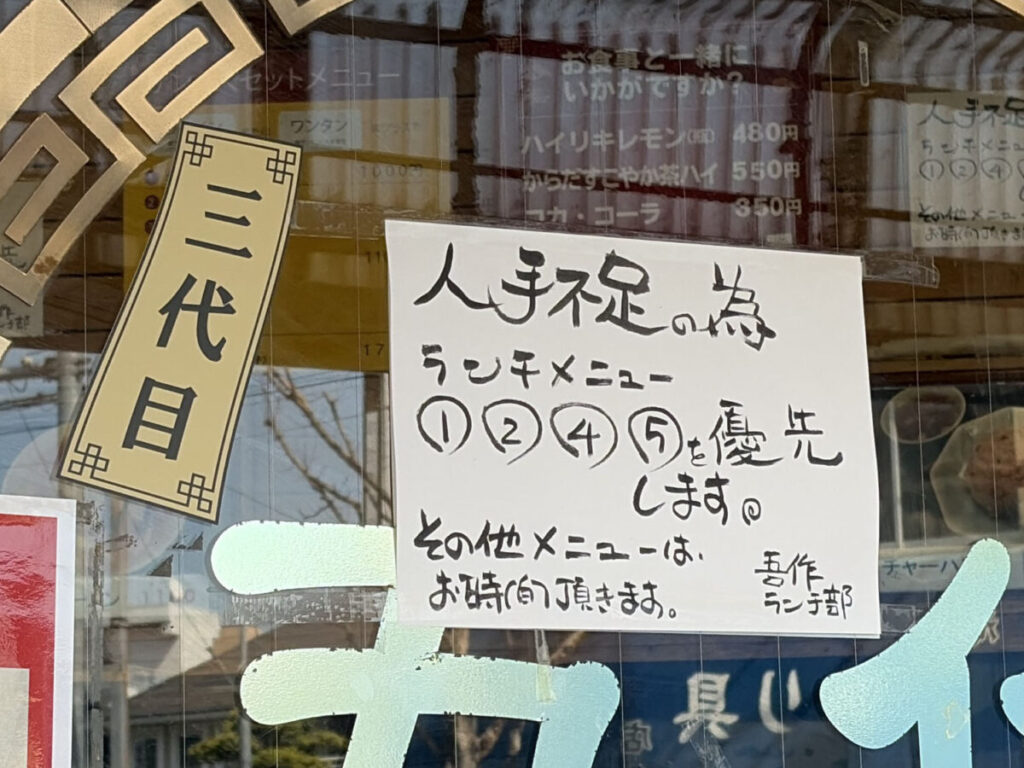 セットメニュー
ワンタン
お食事と一緒に
いかがですか?
ハイリキレモン
480円
からだすこやか茶ハイ 550円
コカ・コーラ 350円
三代目
人手不足の為
ランチメニュー
①②④⑤を優先
します。
その他メニューは、
お時間頂きます。
吾作
ランチ部
人手不足
その他メニュー
チャーハ